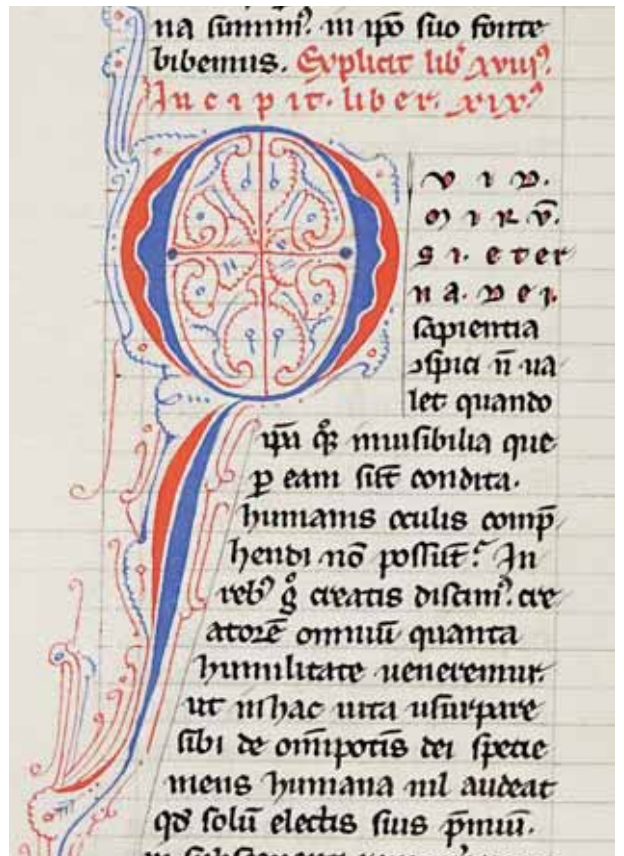 na sumim⁹. in ip̄o suo fonte
bibemus. Explicit lib᷒ xviij⁹.
Incipit. liber. xix⁹
QVID.
MIRV̄.
SI. ETER
NA. DEI.
sapientia
ↄspici n̄ ua
let quando
ip̄a qͦꝫ inuisibilia que
ꝑ eam sūt condita.
humanis oculis comp̄
hendi nō possūt? In
reb⁹ gͦ creatis discim⁹. cre
atorē omniū quanta
humilitate ueneremur.
ut in hac uita usurpare
sibi de om̄ipotētis dei specie
mens humana nil audeat
qd̄ solū electis suis p̄miū.